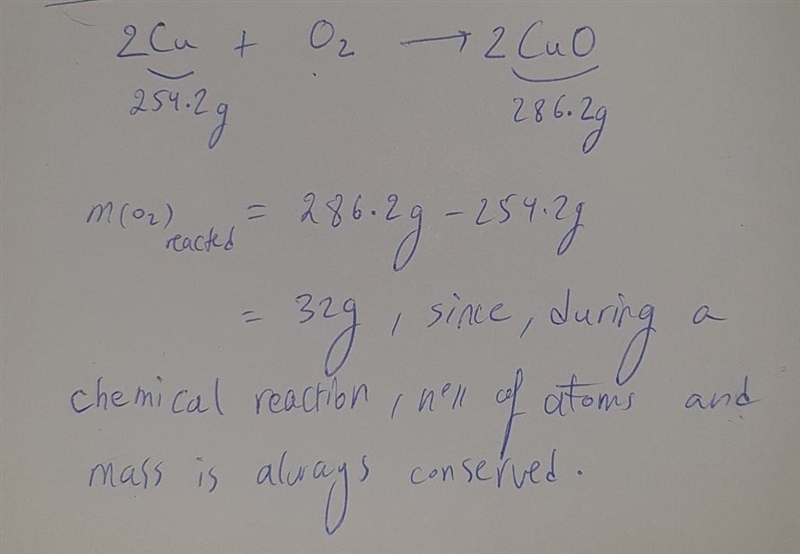 2Cu + O₂ → 2CuO
254.2g 286.2g
m(O₂) reacted = 286.2g - 254.2g
= 32g, since, during a
chemical reaction, of atoms and
mass is always conserved.